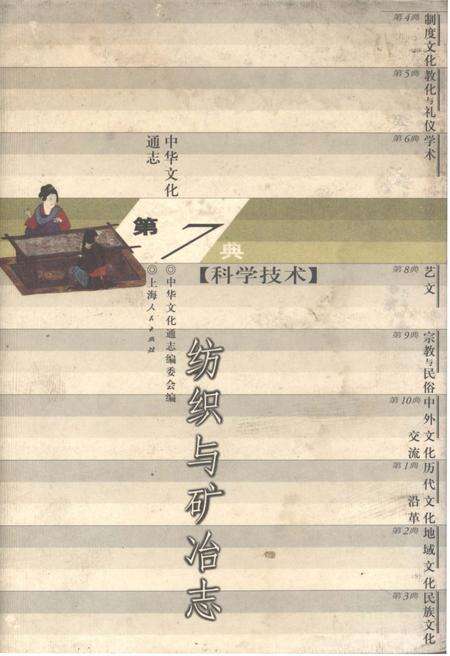 中华文化
通志
第7典
【科学技术】
◎中华文化通志编委会编
◎上海人民出版社
纺织与矿冶志
第4典
制度文化
第5典
教化与礼仪
第6典
学术
第8典
艺文
第9典
宗教与民俗
第10典
中外文化
交流
第1典
历代文化
沿革
第2典
地域文化
第3典
民族文化